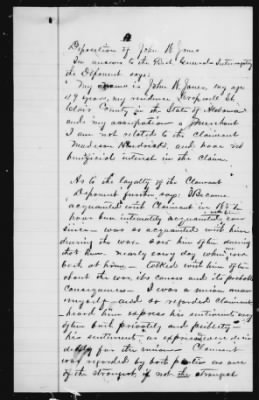 Deposition of John W. Jones
In answer to the First General Interrogatory
the Deponent says:
My name is John W. Jones, my age
49 years, my residence Cropwell St
Clair County in the State of Alabama
and my occupation a Merchant
I am not related to the Claimant
Madison and have no
beneficial interest in the Claim.
As to the loyalty of the Claimant
Deponent further says: I Became
acquainted with Claimant in 1852
have been intimately acquainted ever
since - was so acquainted with him
during the war. Saw him often during
that time. nearly every day when ever
both at home - talked with him often
about the war, its causes and its probable
Consequences - I was a union man
myself - and so regarded Claimant
heard him express his sentiments very
often both privately and publicly -
his sentiments as expressed were
for the union - Claimant
was regarded by both parties as one
of the strongest, if not the strongest